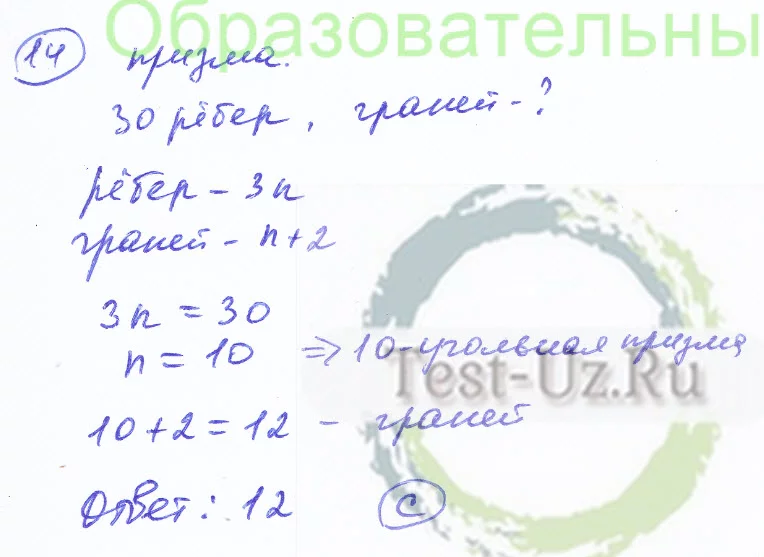 Образовательны
14 призма.
30 рёбер, граней-?
рёбер - 3n
граней - n+2
3n = 30
n = 10 => 10-угольная призма
Test-Uz.Ru
10+2=12 - граней
Ответ: 12 C